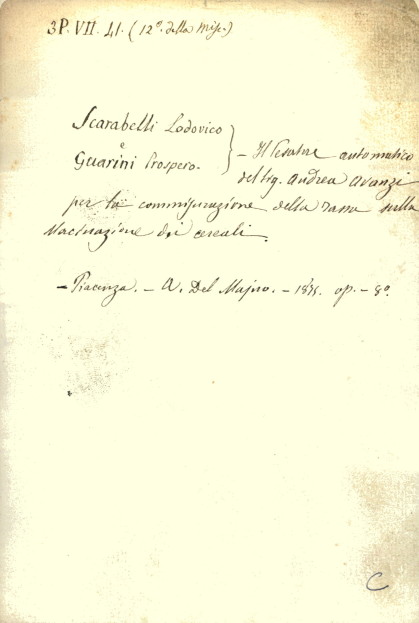 3P. VII. 41. (12º. della Misc.)
Scarabelli Lodovico
e
Guarini Prospero.
- Il Pesatore automatico
del Sig. Andrea Avanzi
per la commisurazione della tassa sulla
Macinazione dei cereali.
- Piacenza. - A. Del Majno. - 1871. op. - 8º.
C